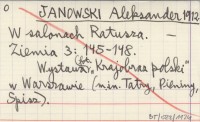 JANOWSKI Aleksander 1912
W salonach Ratusza. —
Ziemia 3: 145-148.
Wystawa fot. „Krajobraz polski"
w Warszawie (m.in. Tatry, Pieniny,
Spisz).